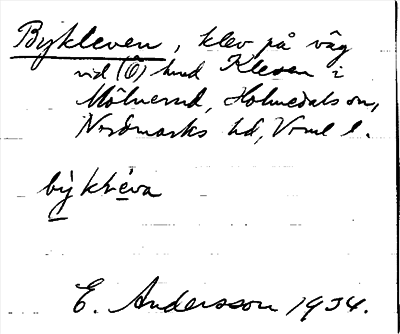 Bykleven, klev på väg
vid (Ö) hmd Kleven i
Mölnerud, Holmedals sn,
Nordmarks hd, Vrml l.
by̍ kle̍va
E. Andersson 1934.